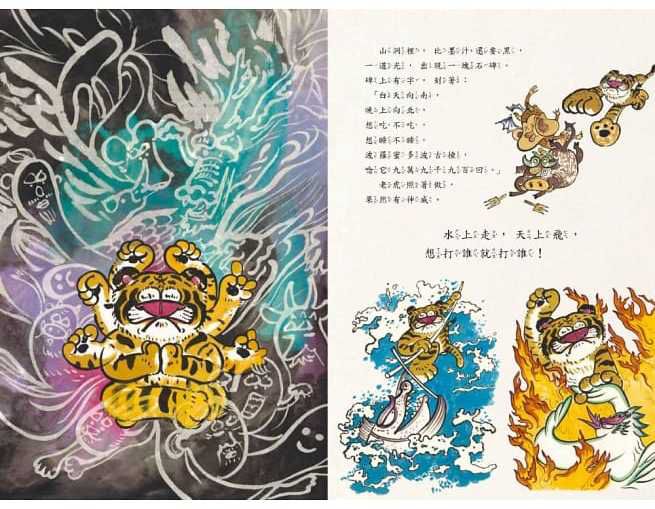 山洞裡，比墨汁還要黑，
一道光，出現一塊石碑，
碑上有字，刻著：
「白天向南，
晚上向北，
想吃不吃，
想睡不睡，
波羅蜜多波古稜，
唸它九萬九千九百回。」
老虎照著做，
果然有神威，
水上走，天上飛，
想打誰就打誰！